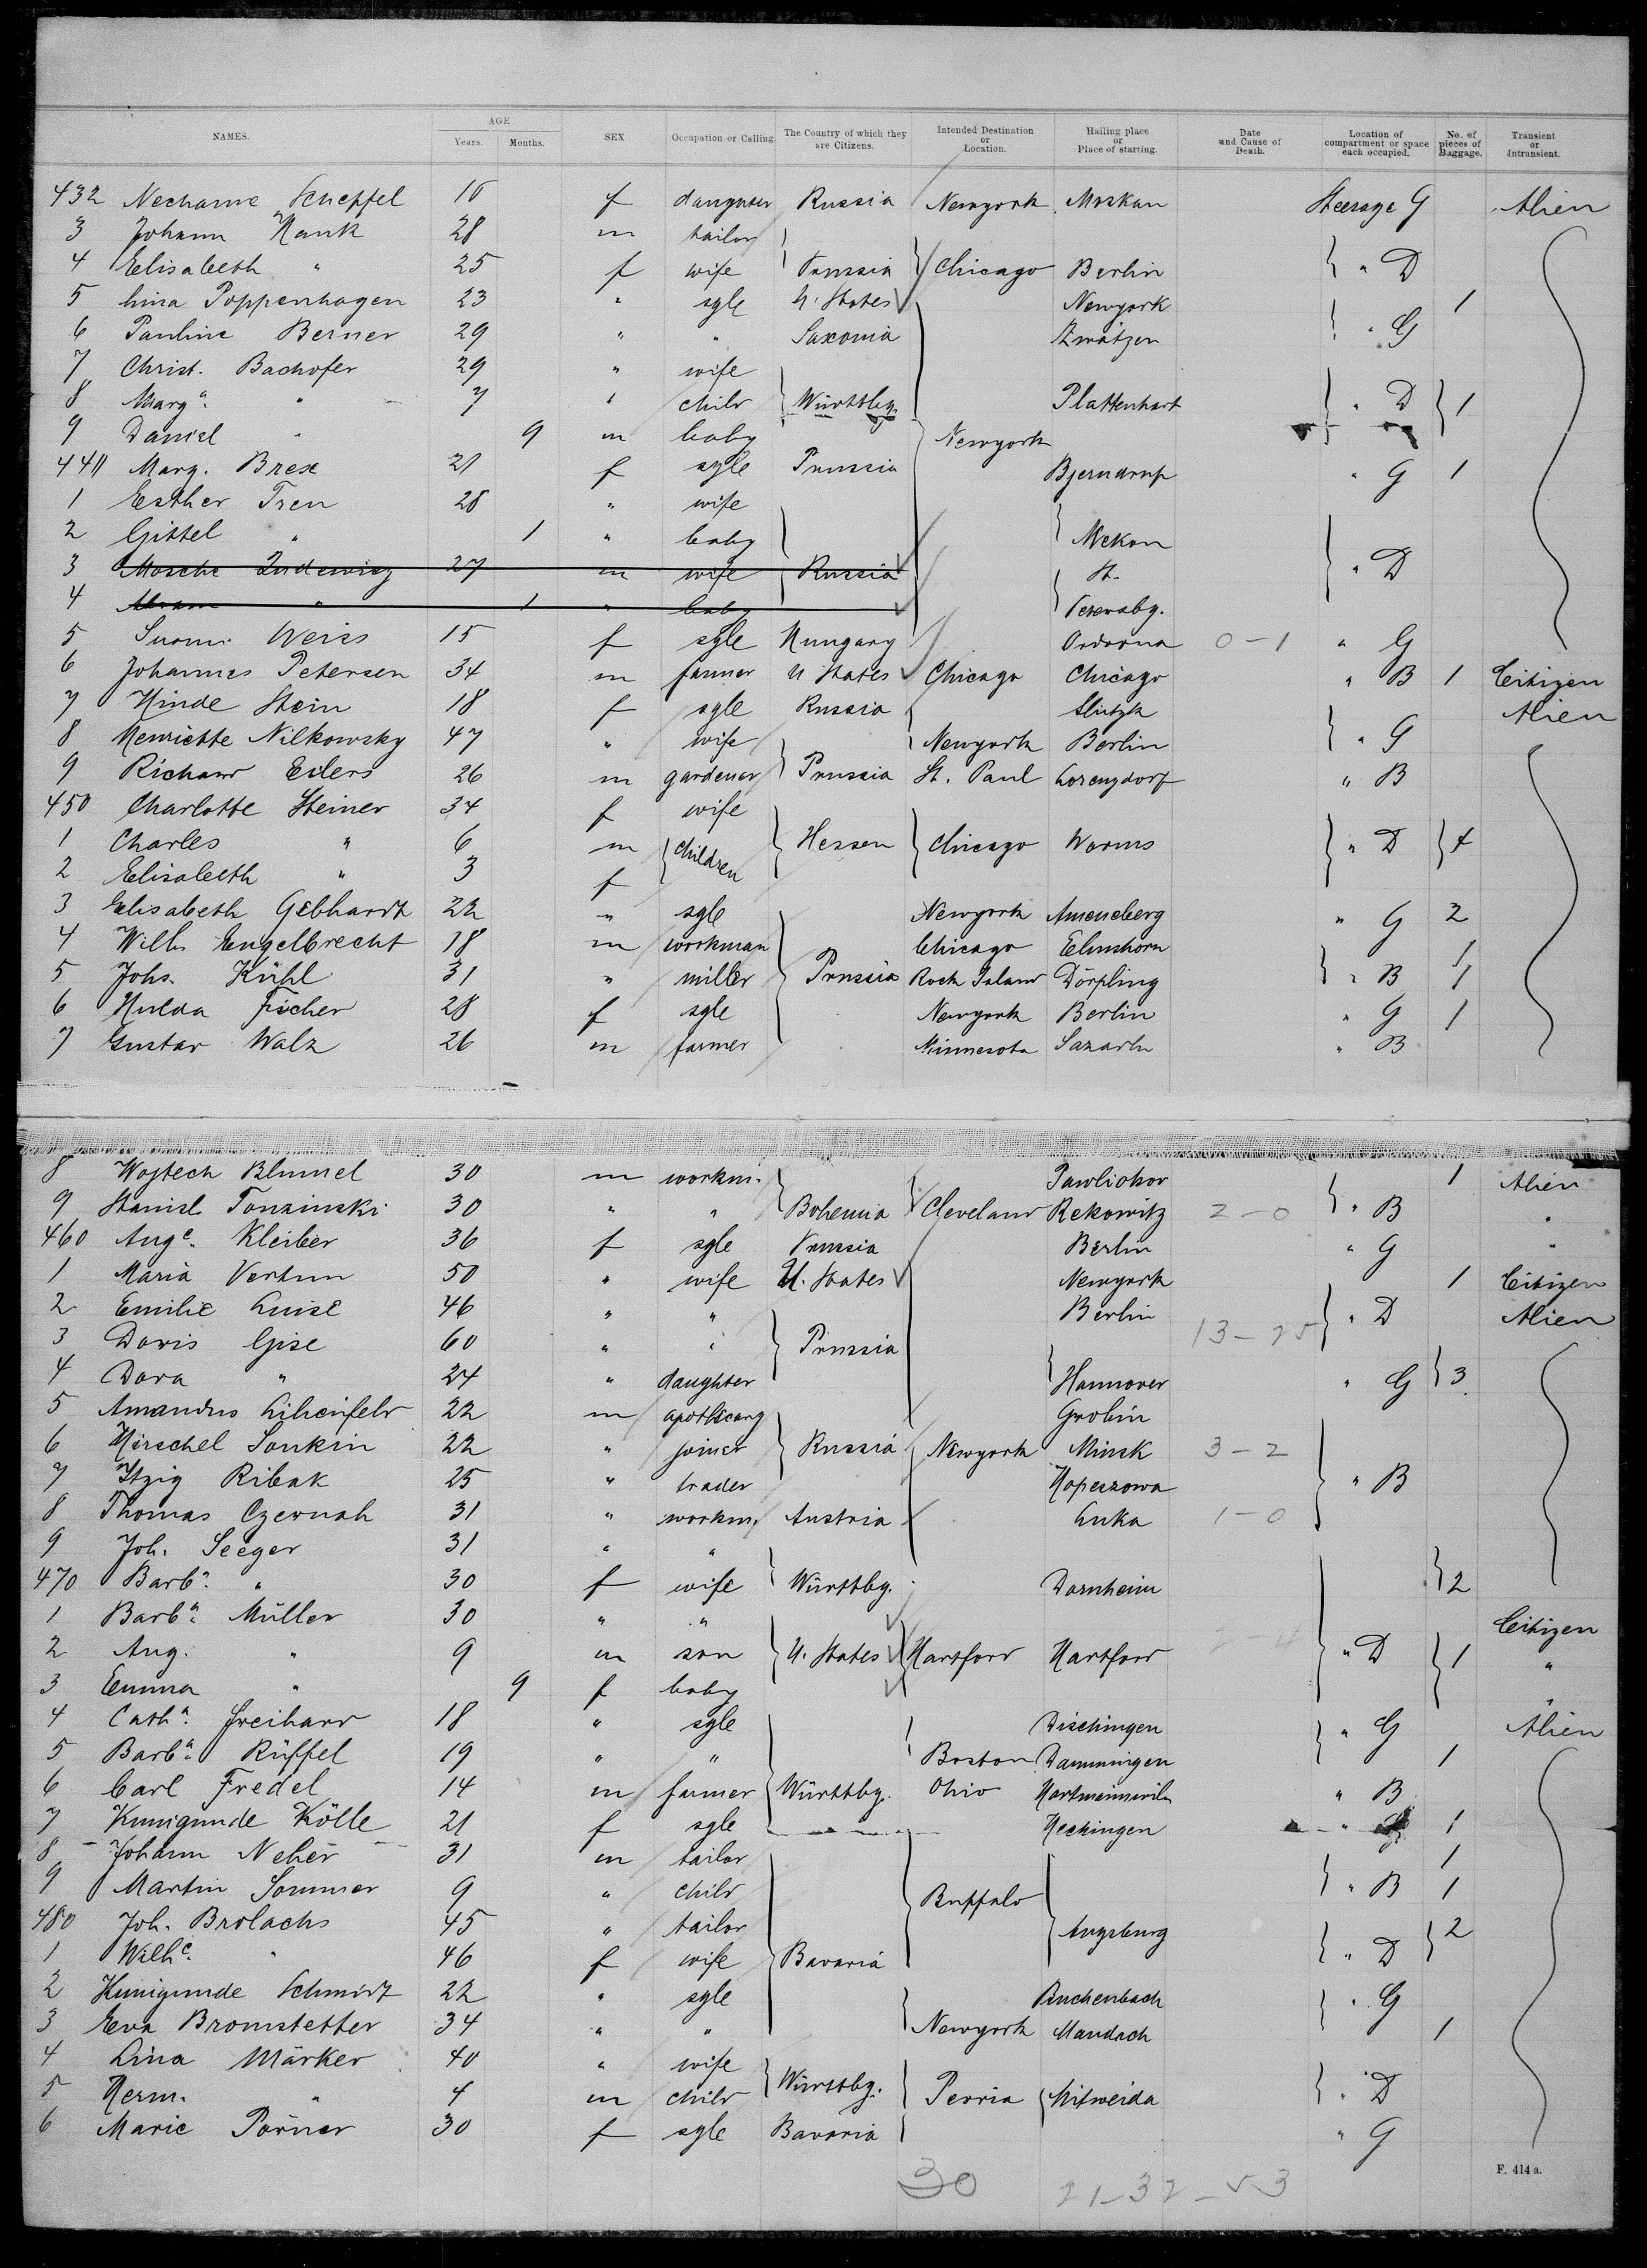 AGE
NAMES. Years. Months. SEX Occupation or Calling. The Country of which they are Citizens. Intended Destination or Location. Hailing place or Place of starting. Date and Cause of Death. Location of compartment or space each occupied. No. of pieces of Baggage. Transient or Intransient.
432 Nechame Scheffel 10 f daughter Russia Newyork Moskau Steerage G Alien
3 Johann Hank 28 m tailor
4 Elisabeth " 25 f wife Prussia Chicago Berlin " D
5 Lina Poppenhagen 23 " sgle U. States Newyork 1
6 Pauline Berner 29 " " Saxonia Zwätzen " G
7 Christ. Bachofer 29 " wife
8 Marga. " 7 " child Württbg. Plattenhart " D 1
9 Daniel " 9 m baby Newyork
440 Marg. Brex 21 f sgle Prussia Bjerndrup " G 1
1 Esther Tren 28 " wife
2 Gittel " 1 " baby
3 Mosche 27 m wife Russia St. " D
4 Abram " 1 " baby Petersbg.
5 Weiss 15 f sgle Hungary 0-1 " G
6 Johannes Petersen 34 m farmer U States Chicago Chicago " B 1 Citizen
7 Hinde Stein 18 f sgle Russia Slutzk Alien
8 Henriette Nilkowsky 47 " wife Newyork Berlin " G
9 Richard Eilers 26 m gardener Prussia St. Paul Lorenzdorf " B
450 Charlotte Steiner 34 f wife
1 Charles " 6 m children Hessen Chicago Worms " D 4
2 Elisabeth " 3 f
3 Elisabeth Gebhardt 22 " sgle Newyork Amoneberg " G 2
4 Wilh. Engelbrecht 18 m workman Chicago Elmshorn 1
5 Johs. Kühl 31 " miller Prussia Rock Island Dörpling " B 1
6 Hulda Fischer 28 f sgle Newyork Berlin " G 1
7 Gustav Walz 26 m farmer Minnesota " B
8 Wojtech Blumel 30 m workm. 1 Alien
9 Stanisl Tonzinski 30 " " Bohemia Cleveland Rekowitz 2-0 " B "
460 Auge. Kleiber 36 f sgle Prussia Berlin " G "
1 Maria Vertun 50 " wife U. States Newyork 1 Citizen
2 Emilie Luise 46 " " Berlin " D Alien
3 Doris Gise 60 " " Prussia 13-25
4 Dora " 24 " daughter Hannover " G 3
5 Amandus Lilienfeld 22 m apothecary Grobin
6 Hirschel Sonkin 22 " joiner Russia Newyork Minsk 3-2
7 Itzig Ribak 25 " trader " B
8 Thomas Czernah 31 " workm. Austria Luka 1-0
9 Joh. Seeger 31 " "
470 Barba. " 30 f wife Württbg. Dornheim 2
1 Barba. Müller 30 " " Citizen
2 Aug. " 9 m son U. States Hartford Hartford 2-4 " D 1 "
3 Emma " 9 f baby "
4 Catha. Freihard 18 " sgle Dischingen " G Alien
5 Barba. Rüffel 19 " " Boston 1
6 Carl Fredel 14 m farmer Württbg. Ohio " B
7 Kunigunde Kölle 21 f sgle Hechingen " G 1
8 Johann Neher 31 m tailor 1
9 Martin Sommer 9 " child Buffalo " B 1
480 Joh. Brolachs 45 " tailor Augsburg 2
1 Wilhe. " 46 f wife Bavaria " D
2 Kunigunde Schmidt 22 " sgle Buchenbach " G
3 Eva Bromstetter 34 " " Newyork Maudach 1
4 Lina Märker 40 " wife
5 Herm. " 4 m child Württbg. Peoria Mitweida " D
6 Marie Pörner 30 f sgle Bavaria " G
F. 414 a.
30 21-32-53